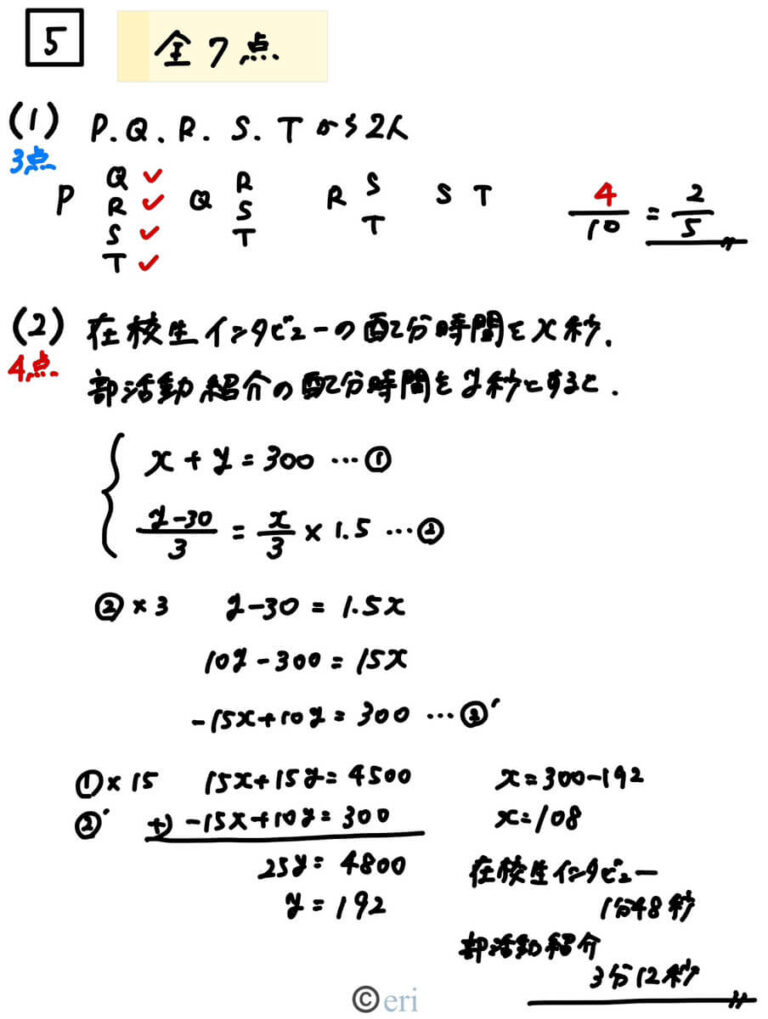 5 全7点
(1) P.Q.R.S.Tから2人
3点
P Q✓ Q R R S S T 4/10 = 2/5
R✓ S T
S✓ T
T✓
(2) 在校生インタビューの配分時間をx秒,
4点 部活動紹介の配分時間をy秒とすると.
{ x+y=300 …①
(y-30)/3 = x/3 × 1.5 …②
②×3 y-30=1.5x
10y-300=15x
-15x+10y=300 …②′
①×15 15x+15y=4500 x=300-192
②′ +) -15x+10y=300 x=108
25y=4800 在校生インタビュー
y=192 1分48秒
部活動紹介
3分12秒
©eri